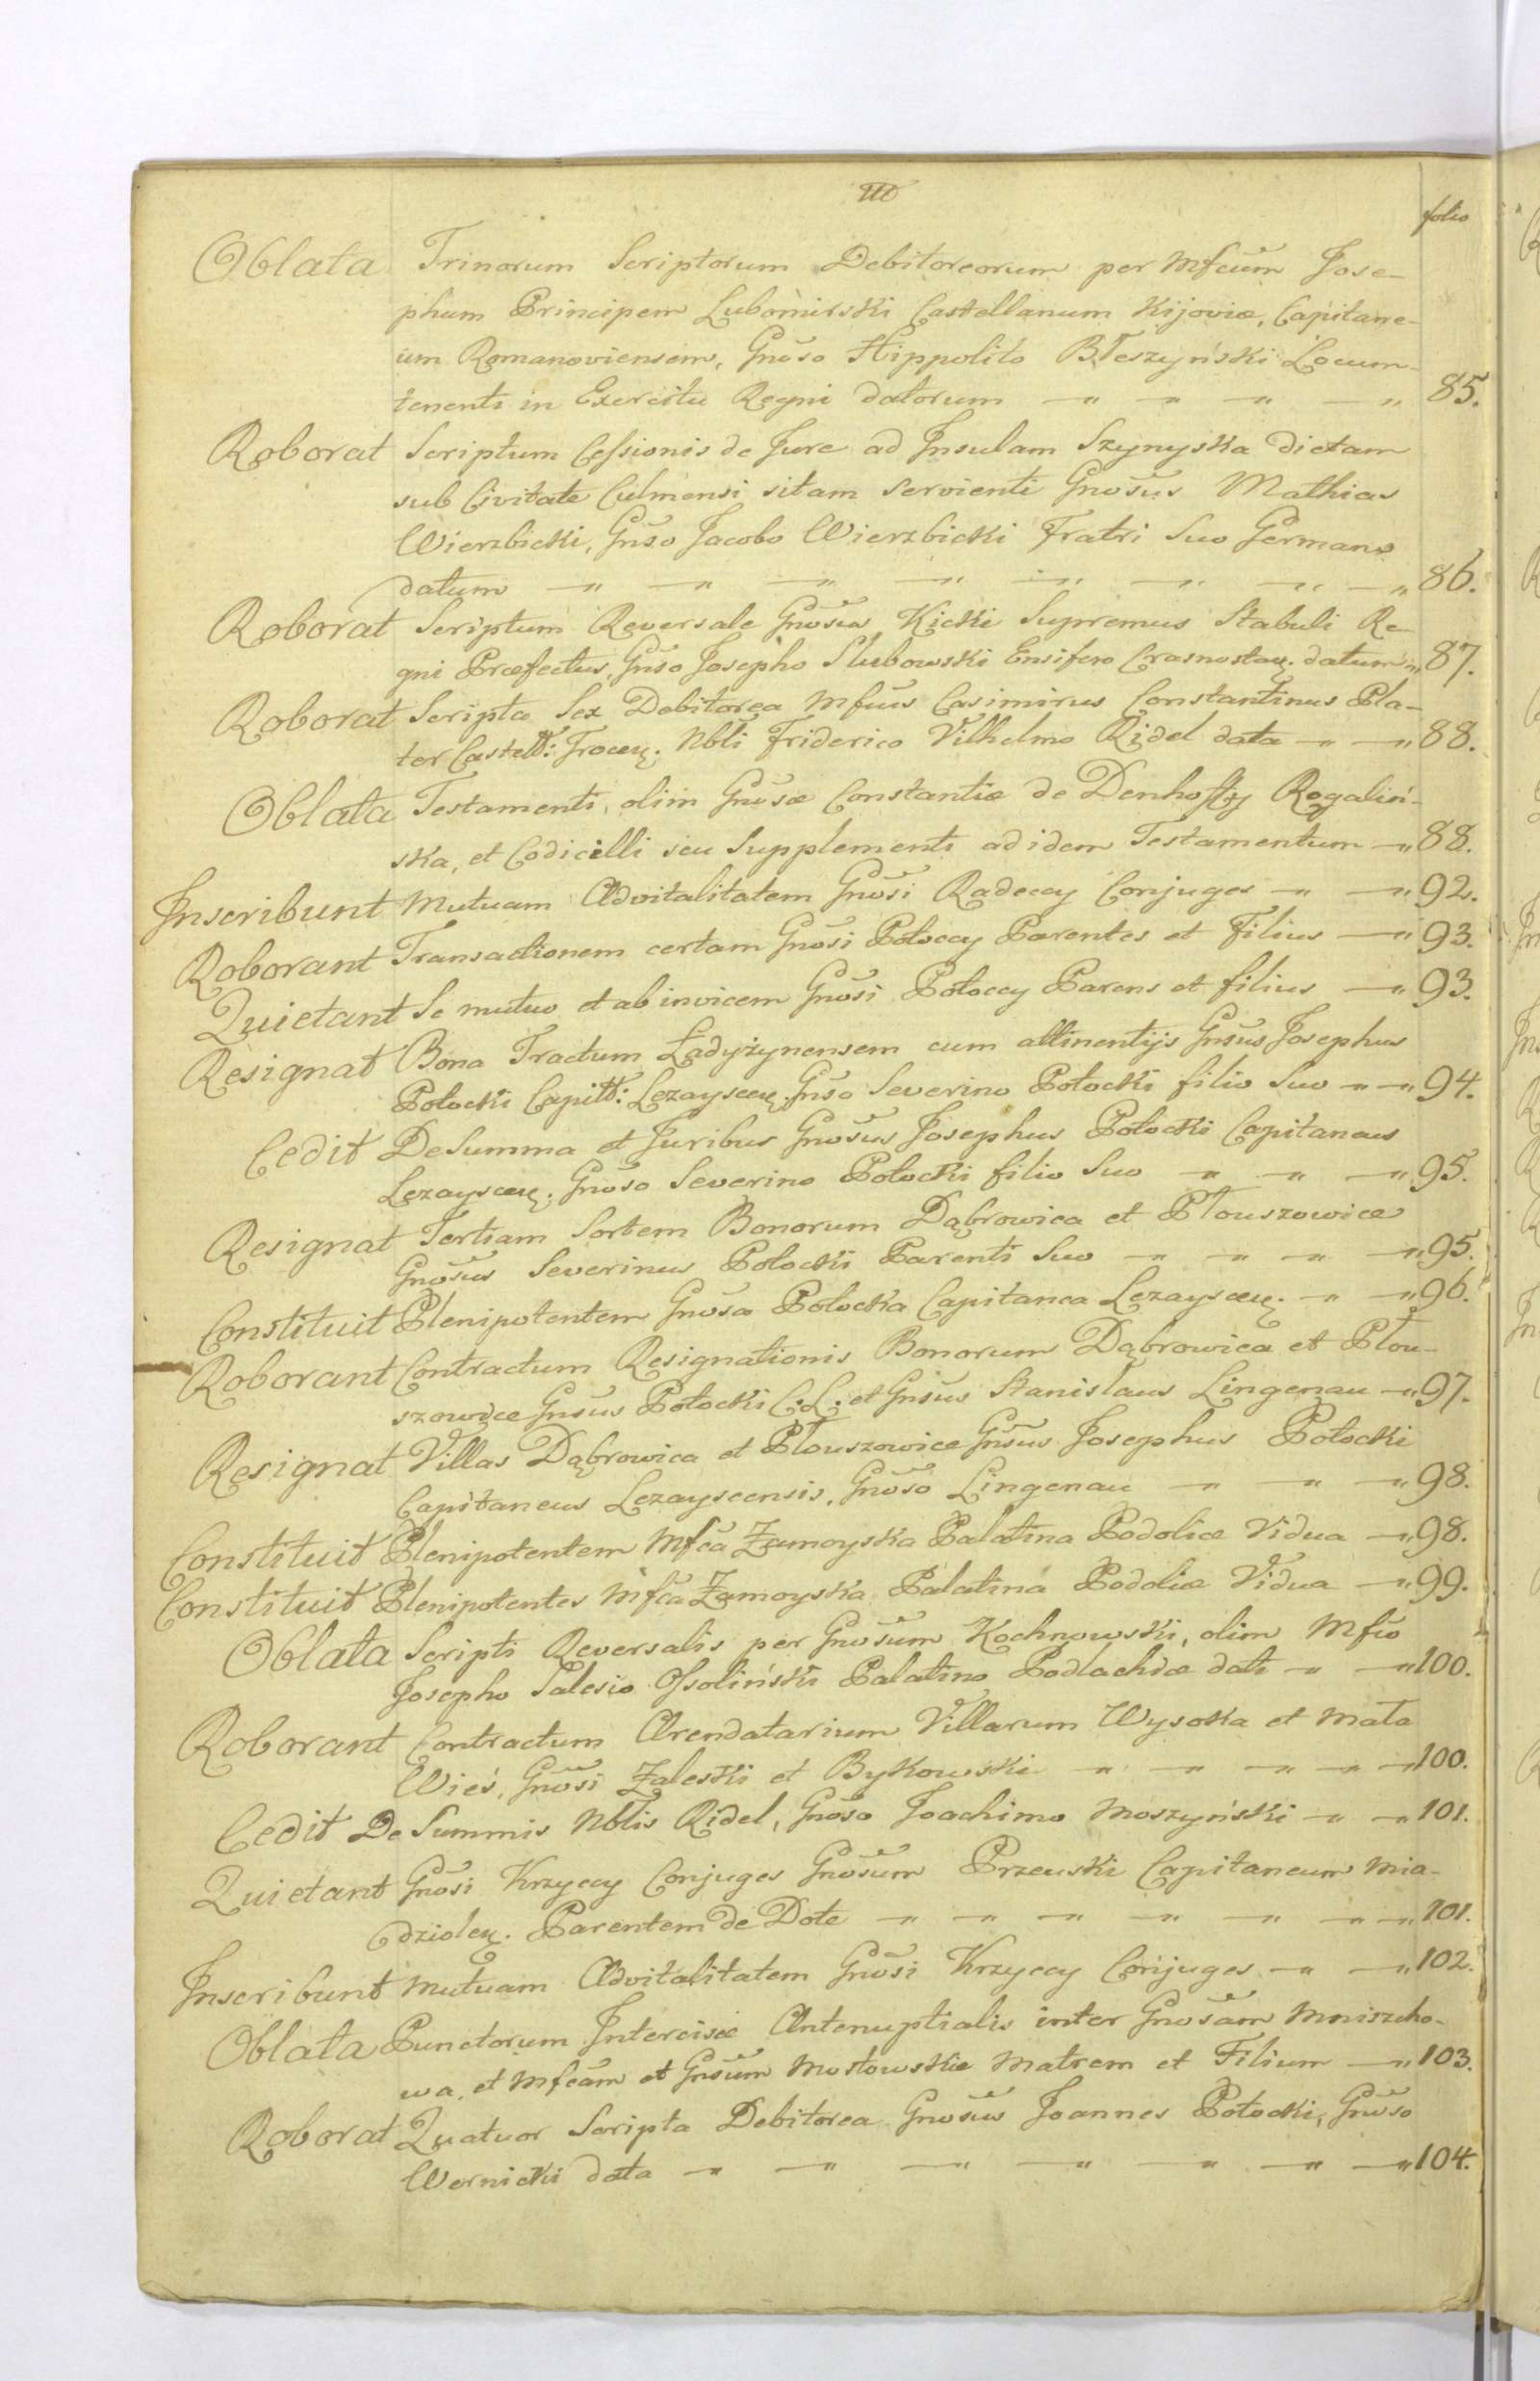 III
folio
Oblata Trinorum Scriptorum Debitoreorum per Mfcum Jose-
phum Principem Lubomirski Castellanum Kijoviæ, Capitane-
um Romanoviensem, Gnoso Hippolito Błeszyński Locum-
tenenti in Exercitu Regni datorum 85.
Roborat Scriptum Cessionis de Jure ad Insulam Szynyska dictam
sub Civitate Culmensi sitam servienti Gnosus Mathias
Wierzbicki, Gnso Jacobo Wierzbicki Fratri Suo Germano
datum 86.
Roborat Scriptum Reversale Gnosus Kicki Supremus Stabuli Re-
gni Præfectus, Gnso Josepho Slubowski Ensifero Crasnostav. datum 87.
Roborat Scripta Sex Debitorea Mfcus Casimirus Constantinus Pla-
ter Castell: Trocen. Nbli Friderico Vilhelmo Ridel data 88.
Oblata Testamenti olim Gnosæ Constantiæ de Denhoffy Rogaliń-
ska, et Codicilli seu Supplementi ad idem Testamentum 88.
Inscribunt Mutuam Advitalitatem Gnosi Radeccy Conjuges 92.
Roborant Transactionem certam Gnosi Potoccy Parentes et Filius 93.
Quietant Se mutuo et ab invicem Gnosi Potoccy Parens et filius 93.
Resignat Bona Tractum Ładyżynensem cum attinentijs Gnsus Josephus
Potocki Capitt: Lezayscen. Gnso Severino Potocki filio Suo 94.
Cedit De Summa et Juribus Gnosus Josephus Potocki Capitaneus
Lezayscen. Gnoso Severino Potocki filio Suo 95.
Resignat Tertiam Sortem Bonorum Dąbrowica et Płouszowice
Gnosus Severinus Potocki Parenti Suo 95.
Constituit Plenipotentem Gnosa Potocka Capitanea Lezayscen. 96.
Roborant Contractum Resignationis Bonorum Dąbrowica et Płou-
szowice Gnsus Potocki C: L: et Gnsus Stanislaus Lingenau 97.
Resignat Villas Dąbrowica et Płouszowice Gnsus Josephus Potocki
Capitaneus Lezayscensis, Gnoso Lingenau 98.
Constituit Plenipotentem Mfca Zamoyska Palatina Podoliæ Vidua 98.
Constituit Plenipotentes Mfca Zamoyska Palatina Podoliæ Vidua 99.
Oblata Scripti Reversalis per Gnosum Kochnowski, olim Mfco
Josepho Salesio Ossoliński Palatino Podlachiæ dati 100.
Roborant Contractum Arendatarium Villarum Wysoka et Mała
Wieś, Gnosi Zaleski et Bykowski 100.
Cedit De Summis Nblis Ridel, Gnoso Joachimo Moszyński 101.
Quietant Gnosi Krzyccy Conjuges Gnosum Przeuski Capitaneum Mia-
dziolen. Parentem de Dote 101.
Inscribunt Mutuam Advitalitatem Gnosi Krzyccy Conjuges 102.
Oblata Punctorum Intercisæ Antenuptialis inter Gnosam Mniszcho-
wa, et Mfcam et Gnsum Mostowskie Matrem et Filium 103.
Roborat Quatuor Scripta Debitorea Gnosus Joannes Potocki, Gnoso
Wernicki data 104.